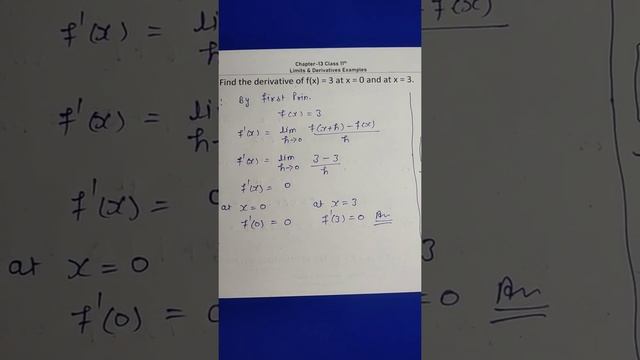 Chapter-13 Class 11th
Limits & Derivatives Examples
Find the derivative of f(x) = 3 at x = 0 and at x = 3.
: By First Prin.
f(x) = 3
f'(x) = lim h→0 f(x+h) - f(x) / h
f'(x) = lim h→0 3 - 3 / h
f'(x) = 0
at x = 0 at x = 3
f'(0) = 0 f'(3) = 0 An